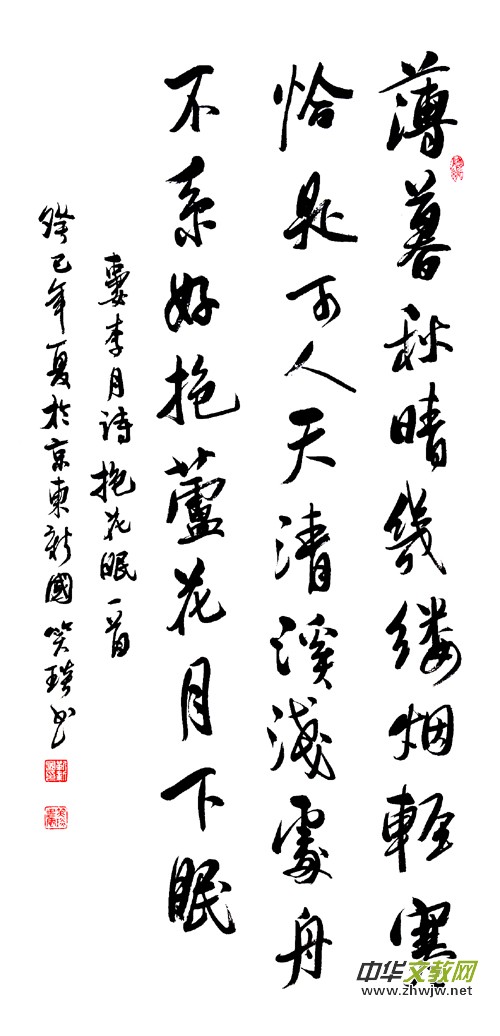 薄暮秋晴幾缕烟輕寒
恰是可人天清溪淺處舟
不系好抱蘆花月下眠
婁李月詩抱花眠一首
癸巳年夏於京東新國笑书
中华文教网
www.zhwjw.net